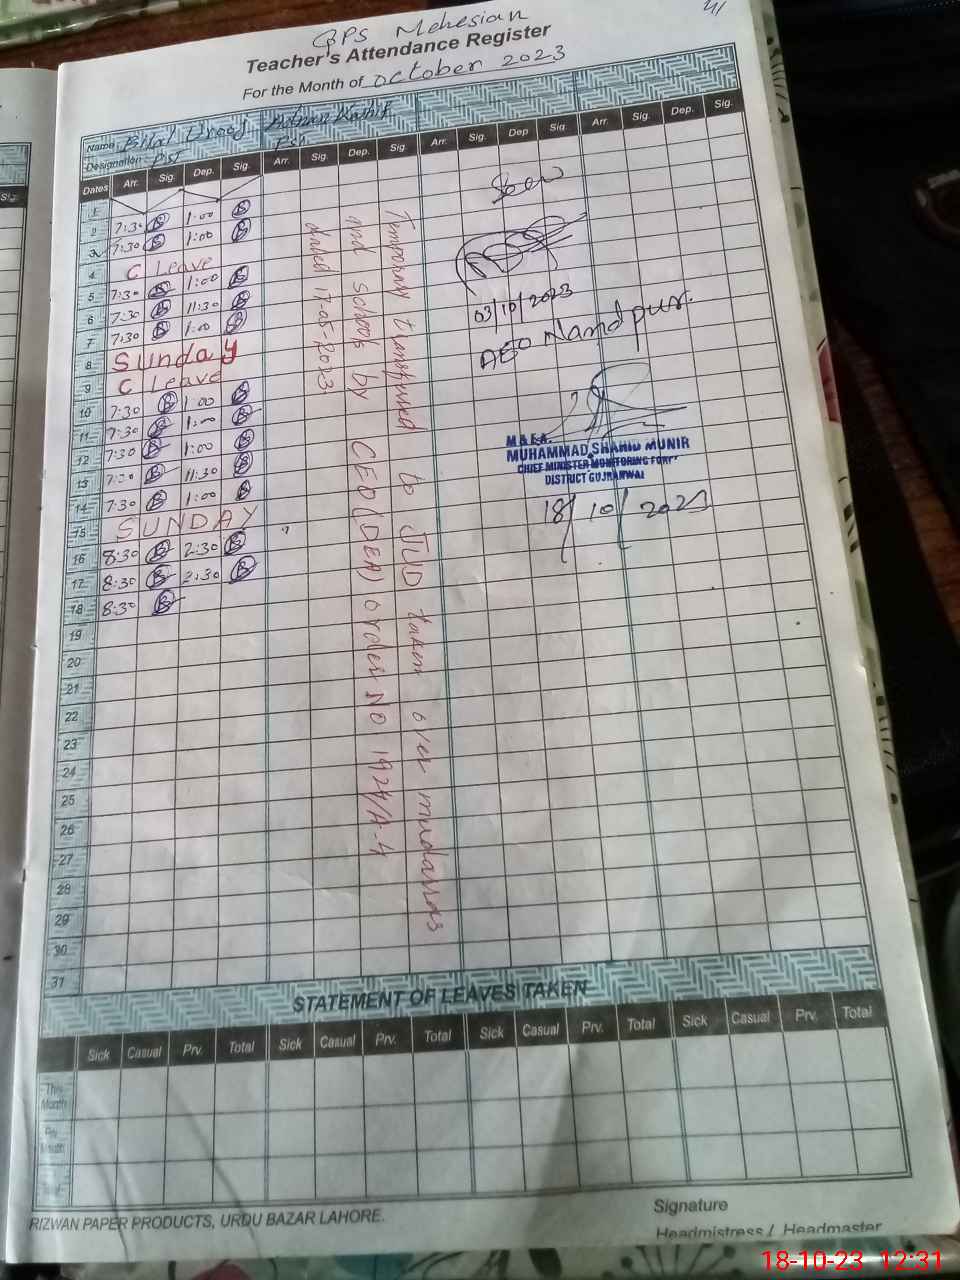 41
GPS Mehesian
Teacher's Attendance Register
For the Month of October 2023
Name: Bilal
Designation: PST
Adnan Kashif
Dates Arr. Sig. Dep. Sig. Arr. Sig. Dep. Sig. Arr. Sig. Dep Sig. Arr. Sig. Dep. Sig.
1
2 7:30 1:00
3 7:30 1:00
4 C Leave
5 7:30 1:00
6 7:30 11:30
7 7:30 1:00
8 Sunday
9 C Leave
10 7:30 1:00
11 7:30 1:00
12 7:30 1:00
13 7:30 11:30
14 7:30 1:00
15 SUNDAY
16 8:30 2:30
17 8:30 2:30
18 8:30
19
20
21
22
23
24
25
26
27
28
29
30
31
Temporary transfered to JUD taken over mudarras
and schools by CEO (DEA) order NO 1924/A-4
dated 17-05-2023
Seen
03/10/2023
AEO Nandpur.
M & E.A.
MUHAMMAD SHAHID MUNIR
CHIEF MINISTER MONITORING FORCE
DISTRICT GUJRANWAL
18/10/2023
STATEMENT OF LEAVES TAKEN
Sick Casual Prv. Total Sick Casual Prv. Total Sick Casual Prv. Total Sick Casual Prv. Total
This Month
Prv. Month
RIZWAN PAPER PRODUCTS, URDU BAZAR LAHORE.
Signature
Headmistress / Headmaster
18-10-23 12:31